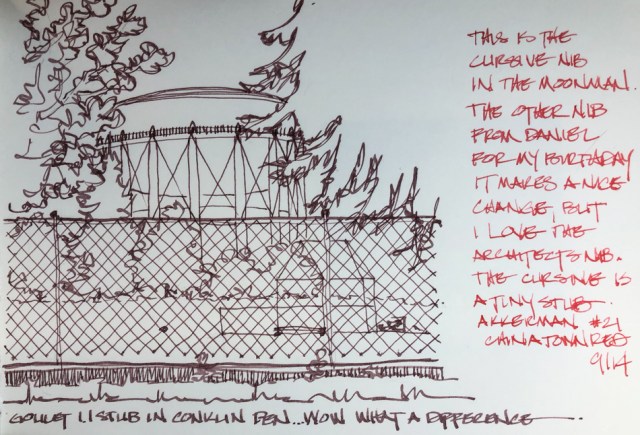 THIS IS THE
CURSIVE NIB
IN THE MOONMAN.
THE OTHER NIB
FROM DANIEL
FOR MY BIRTHDAY
IT MAKES A NICE
CHANGE, BUT
I LOVE THE
ARCHITECTS NIB.
THE CURSIVE IS
A TINY STUB.
AKKERMAN #21
CHINATOWN RED
9/14
GOULET 1.1 STUB IN CONKLIN PEN... WOW WHAT A DIFFERENCE